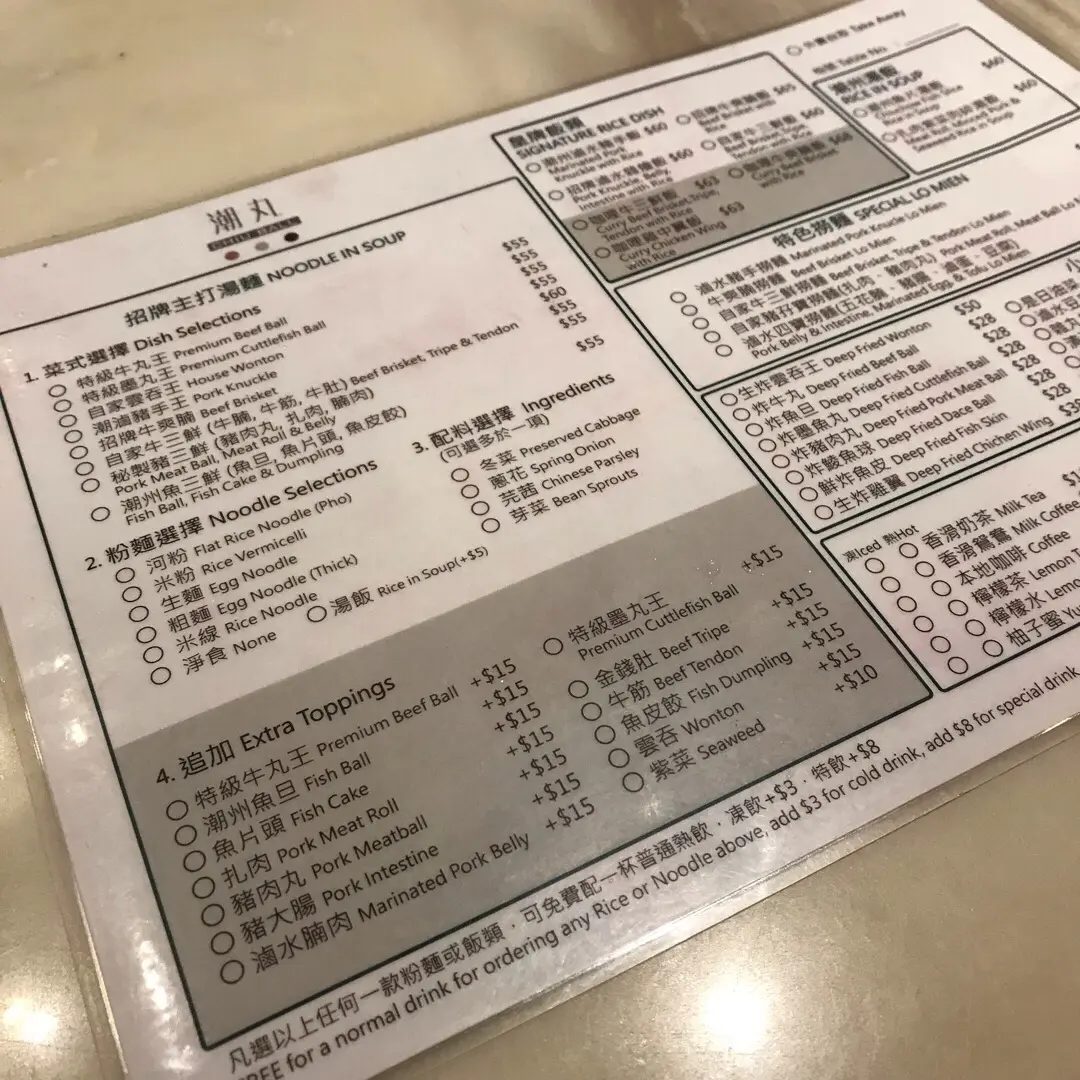 潮丸
CHIU BALL
招牌主打湯麵 NOODLE IN SOUP
1. 菜式選擇 Dish Selections
特級牛丸王 Premium Beef Ball $55
特級墨丸王 Premium Cuttlefish Ball $55
自家雲吞王 House Wonton $55
潮滷豬手王 Pork Knuckle $55
招牌牛爽腩 Beef Brisket $60
自家牛三鮮 (牛腩, 牛筋, 牛肚) Beef Brisket, Tripe & Tendon $55
秘製豬三鮮 (豬肉丸, 扎肉, 腩肉) $55
Pork Meat Ball, Meat Roll & Belly
潮州魚三鮮 (魚旦, 魚片頭, 魚皮餃) $55
Fish Ball, Fish Cake & Dumpling
2. 粉麵選擇 Noodle Selections
河粉 Flat Rice Noodle (Pho)
米粉 Rice Vermicelli
生麵 Egg Noodle
粗麵 Egg Noodle (Thick)
米線 Rice Noodle
淨食 None
湯飯 Rice in Soup(+$5)
3. 配料選擇 Ingredients
(可選多於一項)
冬菜 Preserved Cabbage
蔥花 Spring Onion
芫茜 Chinese Parsley
芽菜 Bean Sprouts
4. 追加 Extra Toppings
特級牛丸王 Premium Beef Ball +$15
潮州魚旦 Fish Ball +$15
魚片頭 Fish Cake +$15
扎肉 Pork Meat Roll +$15
豬肉丸 Pork Meatball +$15
豬大腸 Pork Intestine +$15
滷水腩肉 Marinated Pork Belly +$15
特級墨丸王 +$15
Premium Cuttlefish Ball
金錢肚 Beef Tripe +$15
牛筋 Beef Tendon +$15
魚皮餃 Fish Dumpling +$15
雲吞 Wonton +$15
紫菜 Seaweed +$10
凡選以上任何一款粉麵或飯類，可免費配一杯普通熱飲，凍飲+$3，特飲+$8
FREE for a normal drink for ordering any Rice or Noodle above, add $3 for cold drink, add $8 for special drink
外賣自取 Take Away
檯號 Table No.
皇牌飯類
SIGNATURE RICE DISH
潮州滷水豬手飯 $60
Marinated Pork
Knuckle with Rice
招牌滷水雙雄飯 $60
Pork Knuckle, Belly,
Intestine with Rice
咖喱牛三鮮飯 $63
Curry Beef Brisket,Tripe,
Tendon with Rice
咖喱雞中翼飯 $63
Curry Chicken Wing
with Rice
招牌牛爽腩飯 $65
Beef Brisket with
Rice
自家牛三鮮飯 $60
Beef Brisket,Tripe,
Tendon with Rice
咖喱牛爽腩飯 $68
Curry Beef Brisket
with Rice
潮州湯飯
RICE IN SOUP
$60
Rice in Soup
$60
Meat Roll, Minced Pork &
Seaweed Rice in Soup
特色撈麵 SPECIAL LO MIEN
滷水豬手撈麵 Marinated Pork Knuckle Lo Mien
牛爽腩撈麵 Beef Brisket Lo Mien
自家牛三鮮撈麵 Beef Brisket, Tripe & Tendon Lo Mien
自家豬孖寶撈麵(扎肉、豬肉丸) Pork Meat Roll, Meat Ball Lo
滷水四寶撈麵(五花腩、豬腸、滷蛋、豆腐)
Pork Belly & Intestine, Marinated Egg & Tofu Lo Mien
生炸雲吞王 Deep Fried Wonton $50
炸牛丸 Deep Fried Beef Ball $28
炸魚旦 Deep Fried Fish Ball $28
炸墨魚丸 Deep Fried Cuttlefish Ball $28
炸豬肉丸 Deep Fried Pork Meat Ball $28
炸鯪魚球 Deep Fried Dace Ball $28
鮮炸魚皮 Deep Fried Fish Skin $28
生炸雞翼 Deep Fried Chichen Wing
小
是日油菜
滷水豆
凍Iced 熱Hot
香滑奶茶 Milk Tea
香滑鴛鴦 Milk Coffee
本地咖啡 Coffee
檸檬茶 Lemon
檸檬水 Lemon
柚子蜜